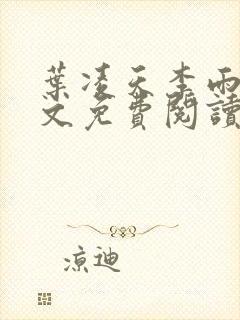 葉凌天李雨
文免費閱讀
涼迪